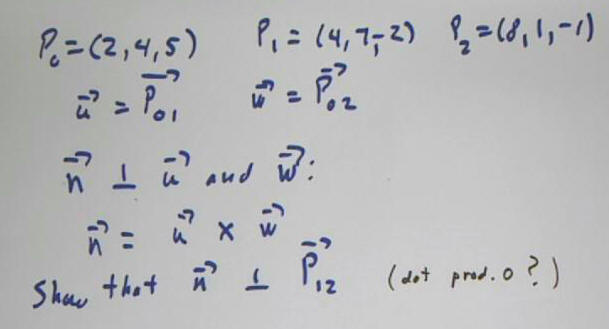 P₀ = (2, 4, 5) P₁ = (4, 7, -2) P₂ = (8, 1, -1)
u⃗ = P⃗₀₁ w⃗ = P⃗₀₂
n⃗ ⊥ u⃗ and w⃗:
n⃗ = u⃗ × w⃗
Show that n⃗ ⊥ P⃗₁₂ (dot prod. 0?)